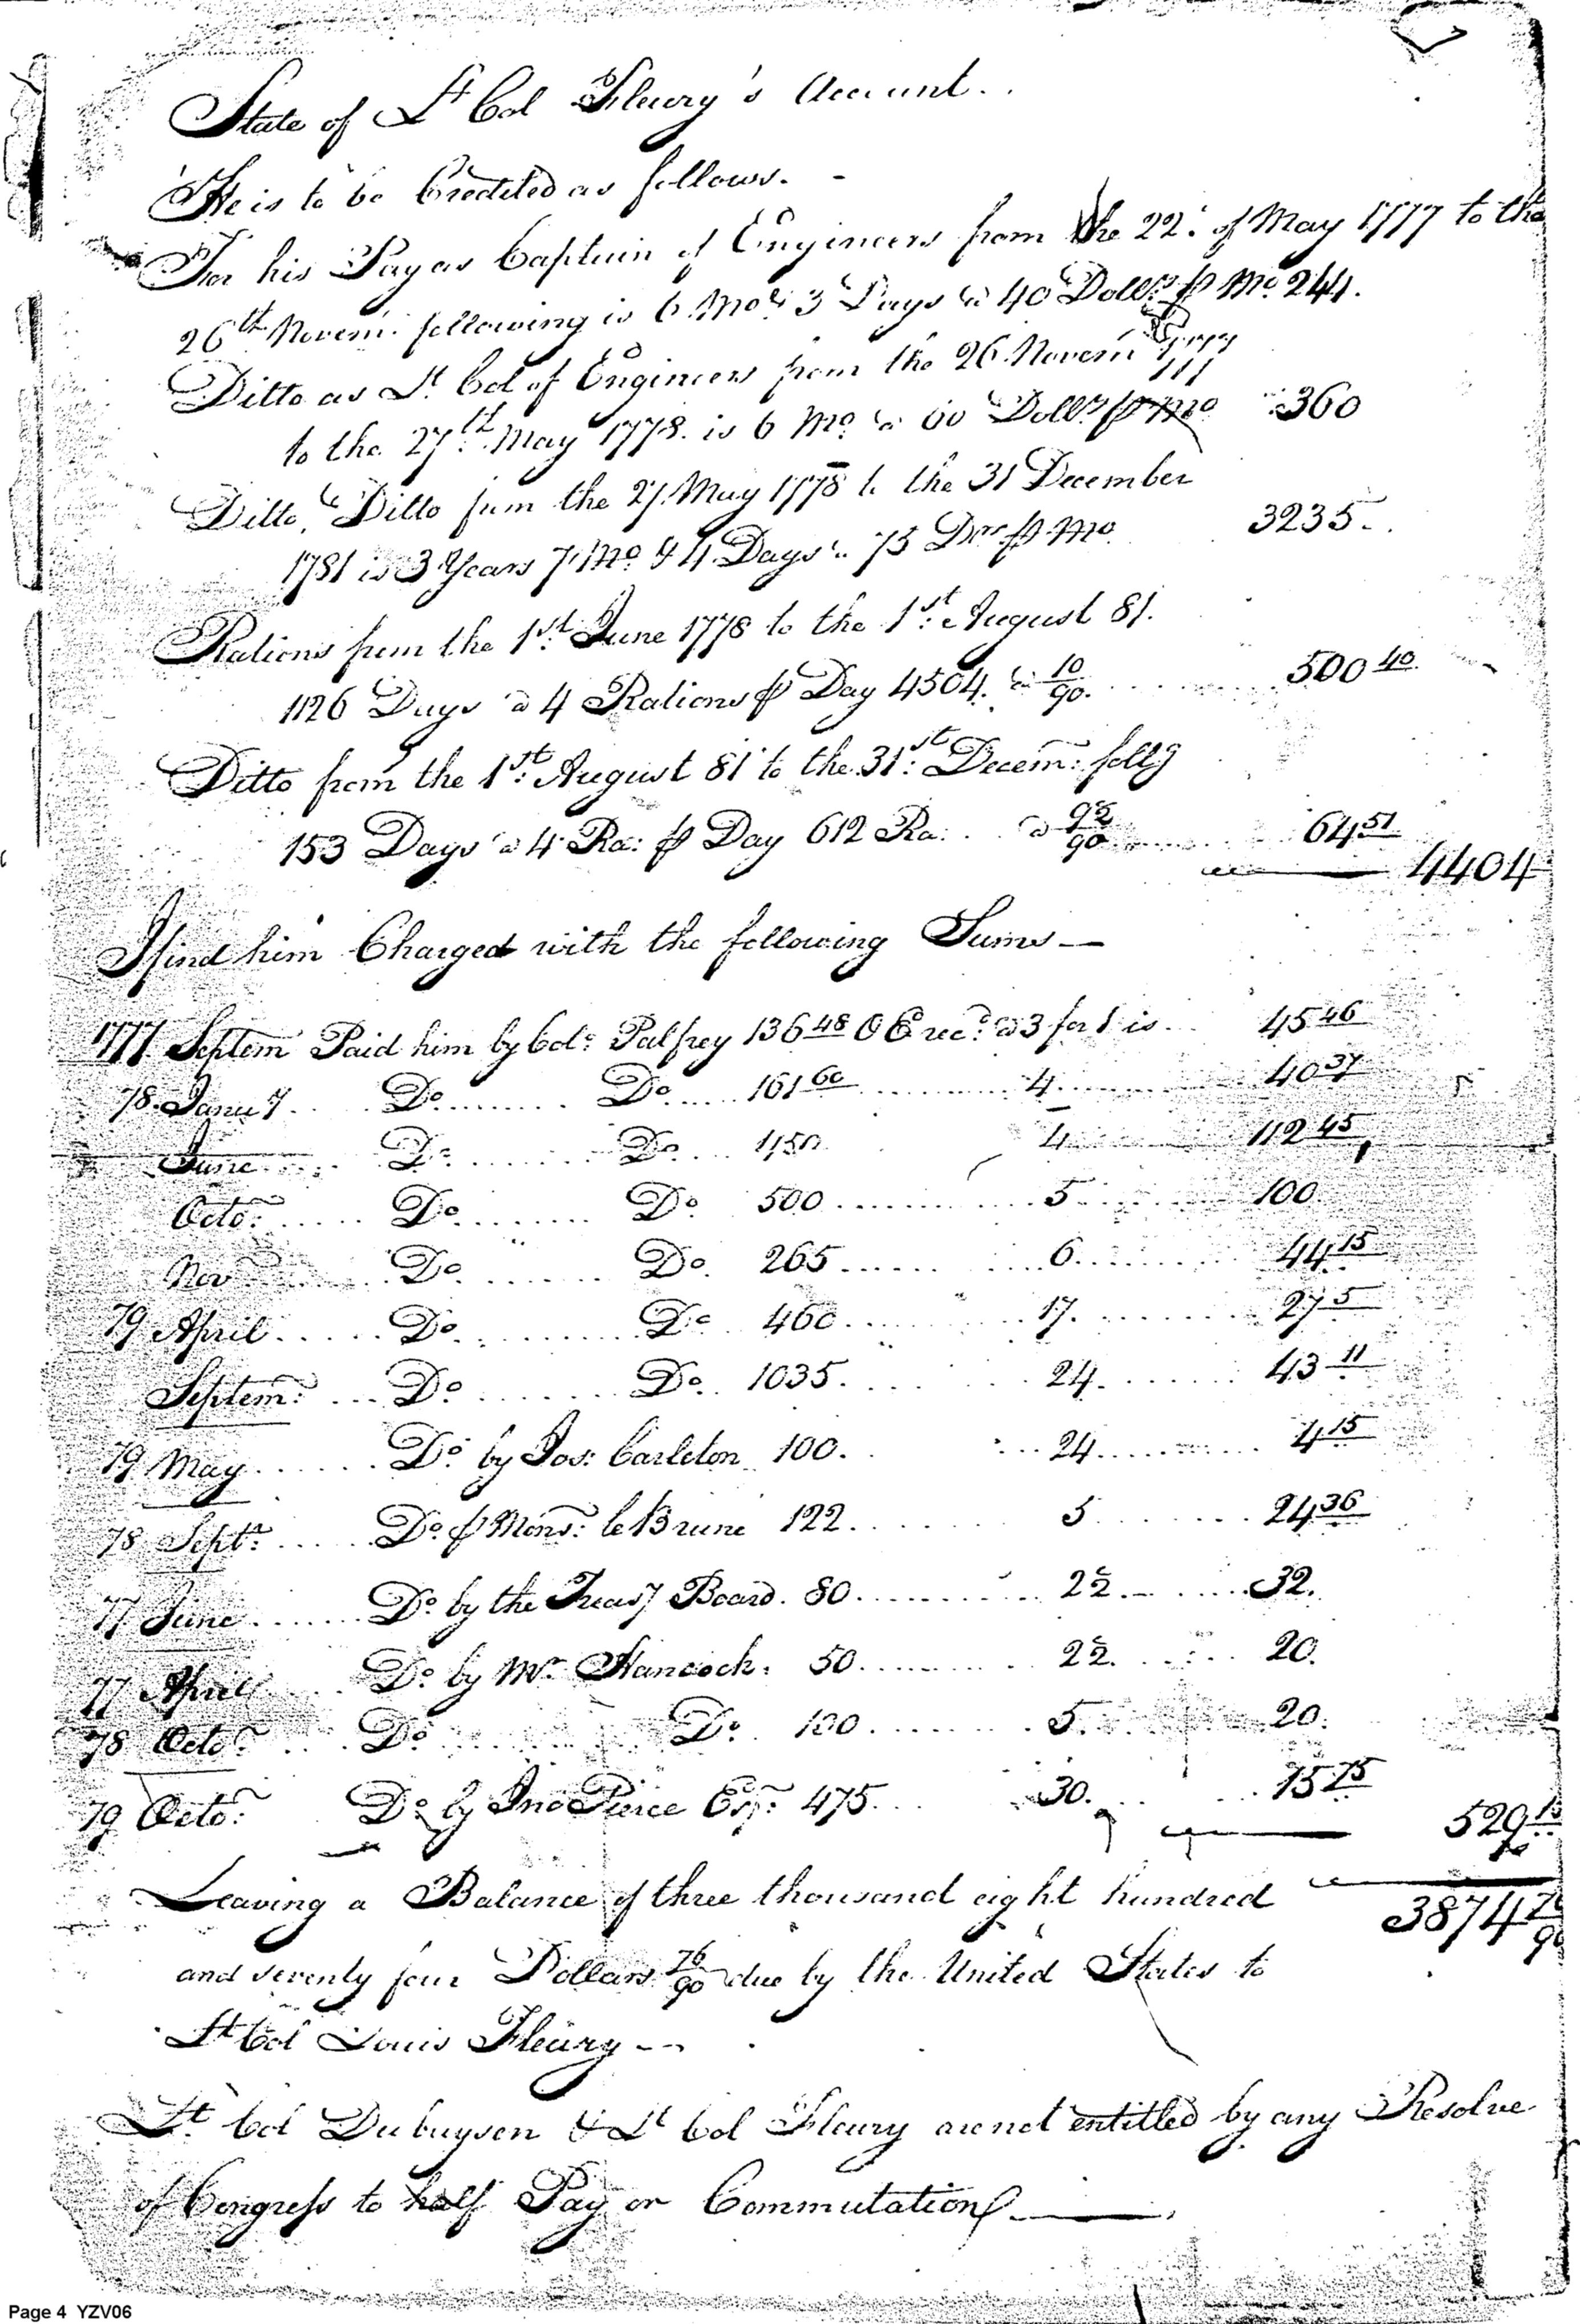 State of Lt Col Fleury's Account.
He is to be Credited as follows. -
For his Pay as Captain of Engineers from the 22d. of May 1777 to the
26th Novem. following is 6 Mos. 3 Days @ 40 Dolls. ⅌ Mo. 244.
Ditto as Lt. Col of Engineers from the 26 Novem 1777
to the 27th. May 1778. is 6 Mo. @ 60 Dolls ⅌ Mo 360
Ditto, Ditto from the 27. May 1778 to the 31 December
1781 is 3 Years 7 Mo. & 4 Days @ 75 Drs ⅌ Mo. 3235..
Rations from the 1st. June 1778 to the 1st. August 81.
1126 Days @ 4 Rations ⅌ Day 4504. @ 10/90. ... 500 40
Ditto from the 1st. August 81 to the 31st. Decem: follg
153 Days @ 4 Ra: ⅌ Day 612 Ra: @ 9½/90 ... 64 51
4404
I find him Charged with the following Sums —
1777 Septem Paid him by Col. Palfrey 136 48 O E recd. @ 3 for 1 is .. 45 46
78. Janu y .. Do. .... Do. ... 161 60 ..... 4. .... 40 37
June ..... Do ..... Do ... 450 4 .... 112 45
Octo. .... Do ..... Do 500 ..... 5 .... 100.
Nov Do. .... Do. 265 .... 6. .... 44 15
79 April ... Do. .... Do 460 .... 17. .... 27 5
Septem: ... Do .... Do. 1035. ... 24. .... 43 11
79 May .... Do. by Jos: Carleton 100. ... 24 .... 4 15
78 Septr. .... Do. ⅌ Mons: le Brune 122 .... 5 .... 24 36
77 June .... Do. by the Treasy Board. 80 .... 2½. .... 32.
77 April Do. by Mr. Hancock. 50 .... 2½. ... 20.
78 Octo. .. Do Do. 100 .... 5. .... 20.
79 Octo: Do. by Jno Pierce Esqr. 475 ... 30. ... 15 75
529 15
Leaving a Balance of three thousand eight hundred 3874 76/90
and seventy four Dollars 76/90 due by the United States to
Lt Col Louis Fleury --
Lt. Col Dubuysen & Lt Col Fleury are not entitled by any Resolve
of Congress to half Pay or Commutation. —
Page 4 YZV06